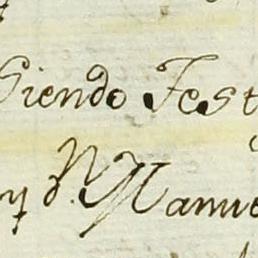 Siendo Test
y D.ⁿ Manue